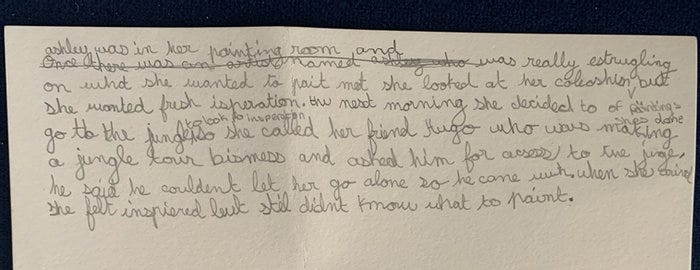 ashley was in her painting room and
Once there was an artist named ashley who was really estrugling
on what she wanted to pait met she looked at her coleashion but
she wanted fresh isperation. the next morning she decided to of paintings
to look fo insperation she's done
go to the jungle, so she called her friend Hugo who was making
a jungle tour bisness and asked him for access to the
he said he couldent let her go alone so he came with. when she
she felt inspiered but stil didnt know what to paint.